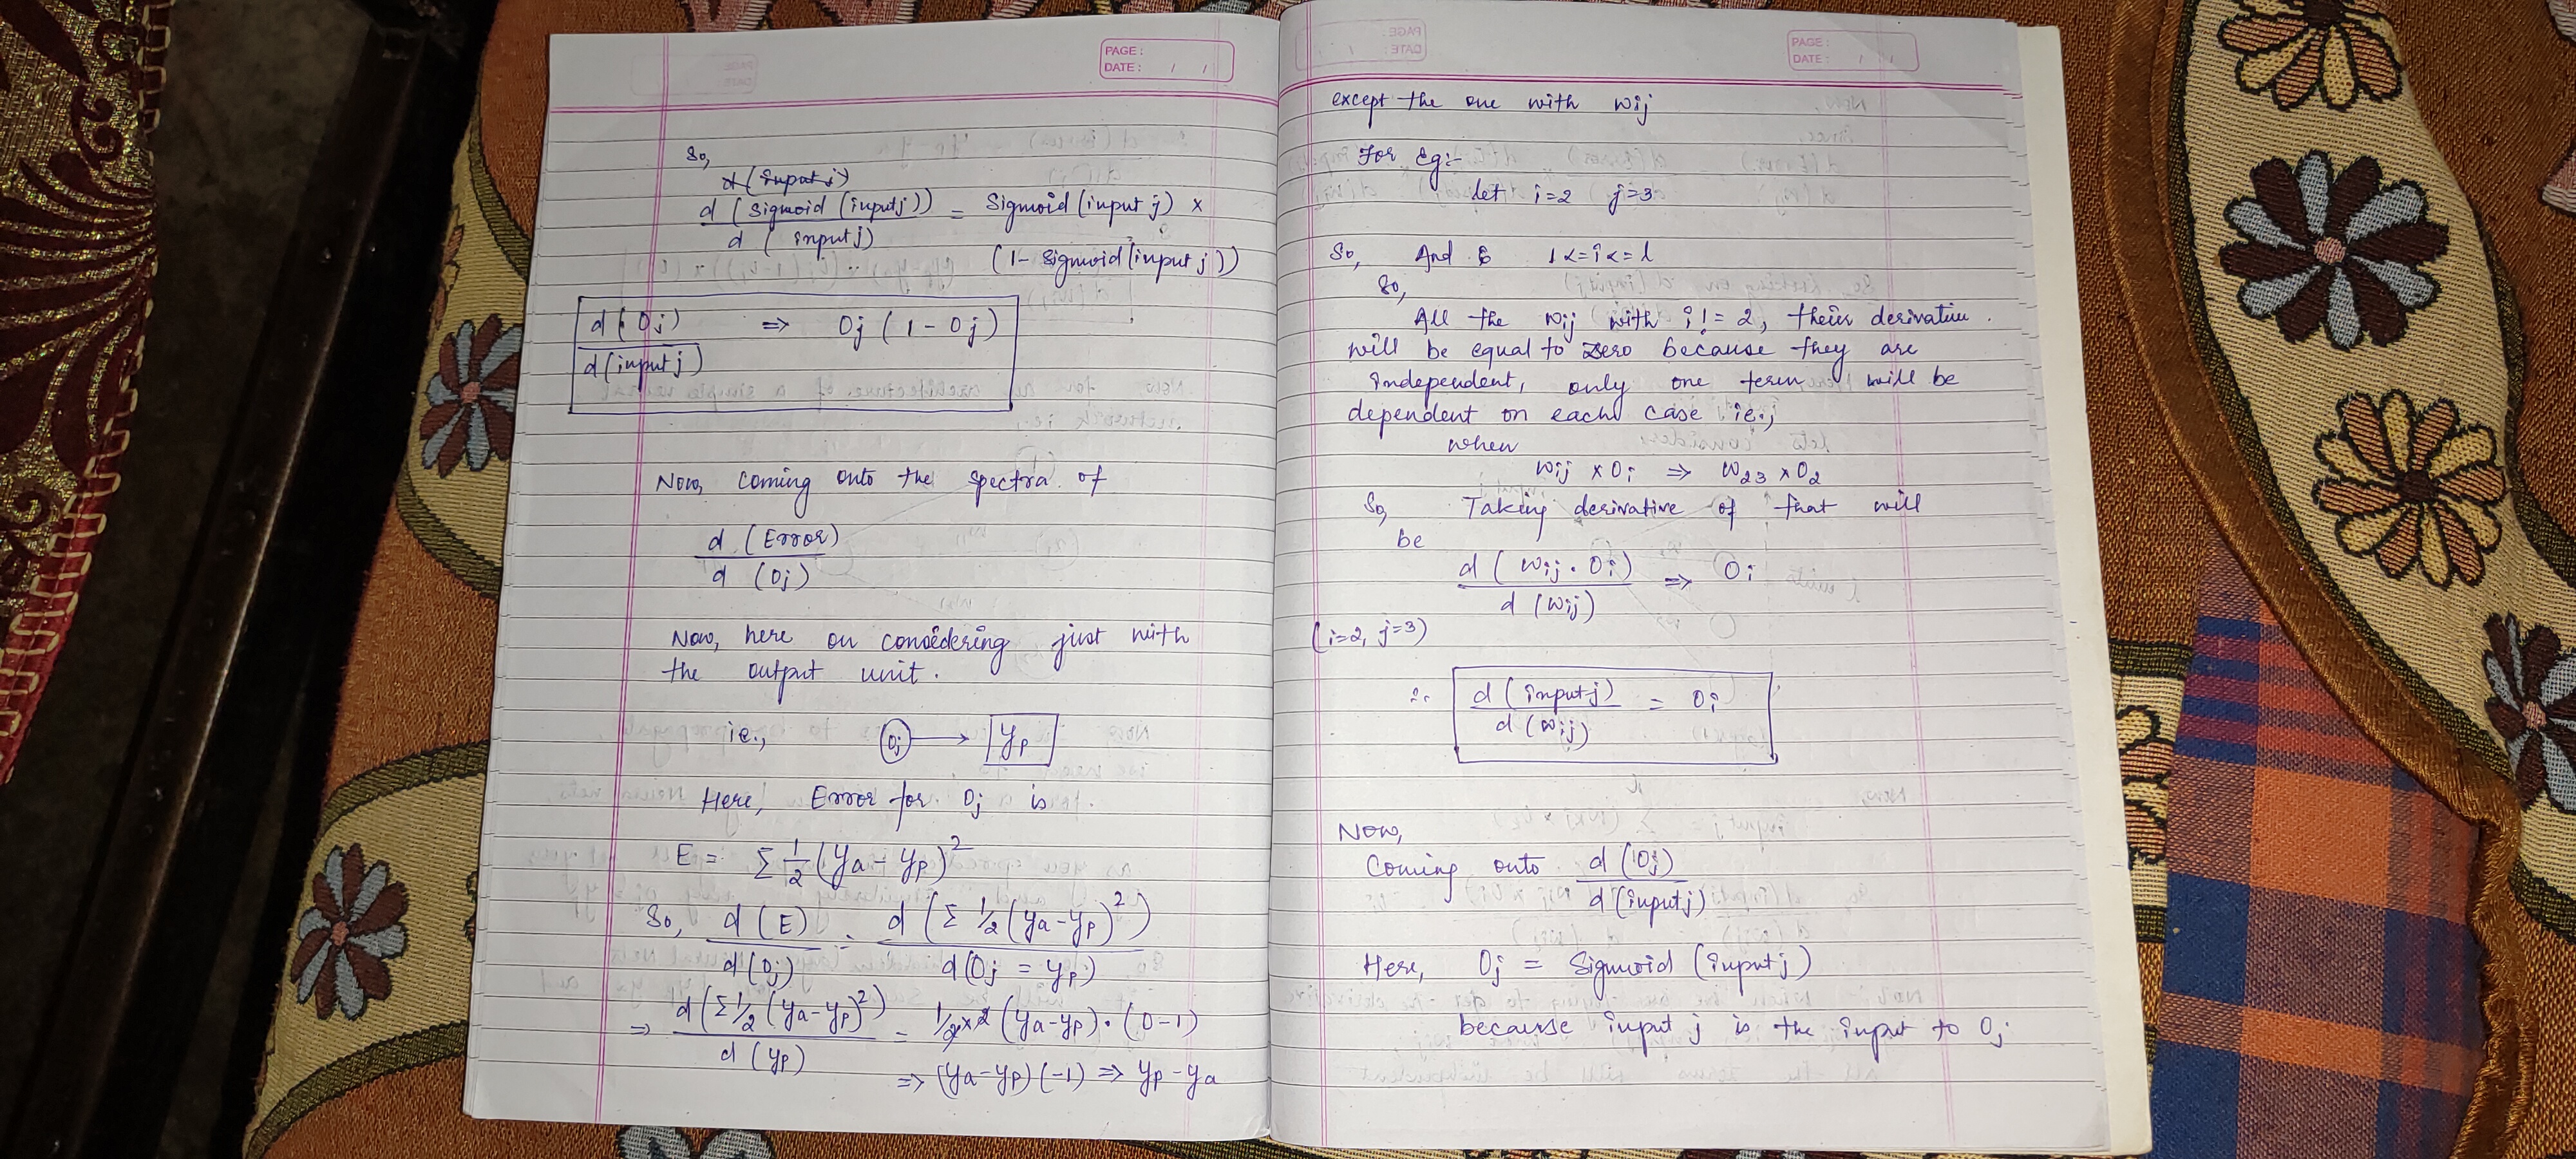 PAGE :
DATE : / /
So,
d (Sigmoid (inputj)) = Sigmoid (input j) ×
d ( inputj)
(1 - Sigmoid (input j))
d ( Oj) ⇒ Oj ( 1 - Oj )
d (input j)
Now, coming onto the spectra of
d (Error)
d (Oj)
Now, here on considering just with
the output unit.
ie., Oj → yp
Here, Error for Oj is
E = Σ 1/2 (ya - yp)²
So, d (E) = d (Σ 1/2 (ya - yp)²)
d (Oj) d (Oj = yp)
⇒ d (Σ 1/2 (ya - yp)²) = 1/2 × 2 (ya - yp) · (0 - 1)
d (yp)
⇒ (ya - yp) (-1) ⇒ yp - ya
PAGE :
DATE : / /
except the one with wij
For Eg:-
let i=2 j=3
So, And 1 <= i <= l
So,
All the wij with i != 2, their derivative
will be equal to zero because they are
independent, only one term will be
dependent on each case ie.,
when
wij × Oi ⇒ w23 × O2
So, Taking derivative of that will
be
d ( wij . Oi) ⇒ Oi
d (wij)
(i=2, j=3)
∴ d (inputj) = Oi
d (wij)
Now,
Coming onto d (Oj)
d (inputj)
Here, Oj = Sigmoid (inputj)
because input j is the input to Oj.